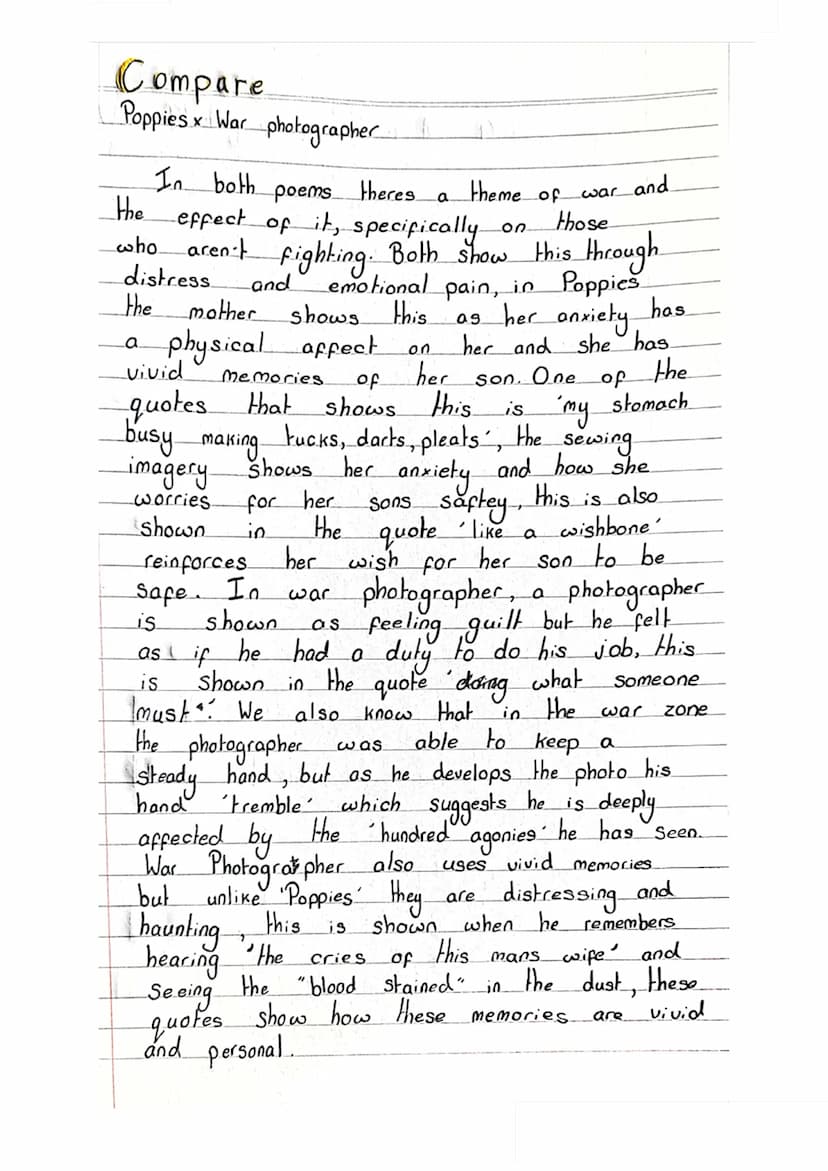 Compare
Poppies x War photographer
In both poems theres a theme of war and
the effect of it, specifically on those
who aren't fighting. Both show this through
distress and emotional pain, in Poppies
the mother shows this as her anxiety has
a physical affect on her and she has
vivid memories of her son. One of the
quotes that shows this is 'my stomach
busy making tucks, darts, pleats', the sewing
imagery shows her anxiety and how she
worries for her sons saftey, this is also
shown in the quote 'like a wishbone'
reinforces her wish for her son to be
safe. In war photographer, a photographer
is shown as feeling guilt but he felt
as if he had a duty to do his job, this
is shown in the quote 'doing what someone
must'. We also know that in the war zone
the photographer was able to keep a
steady hand, but as he develops the photo his
hand 'tremble' which suggests he is deeply
affected by the 'hundred agonies' he has seen.
War Photographer also uses vivid memories
but unlike 'Poppies' they are distressing and
haunting, this is shown when he remembers
hearing 'the cries of this mans wife' and
seeing the "blood stained" in the dust, these
quotes show how these memories are vivid
and personal.